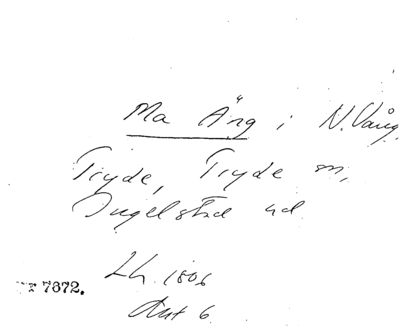 Ma Äng i N. Vång
Tryde, Tryde sn,
Ingelstad hd
Lh. 1806
Akt 6
7372.